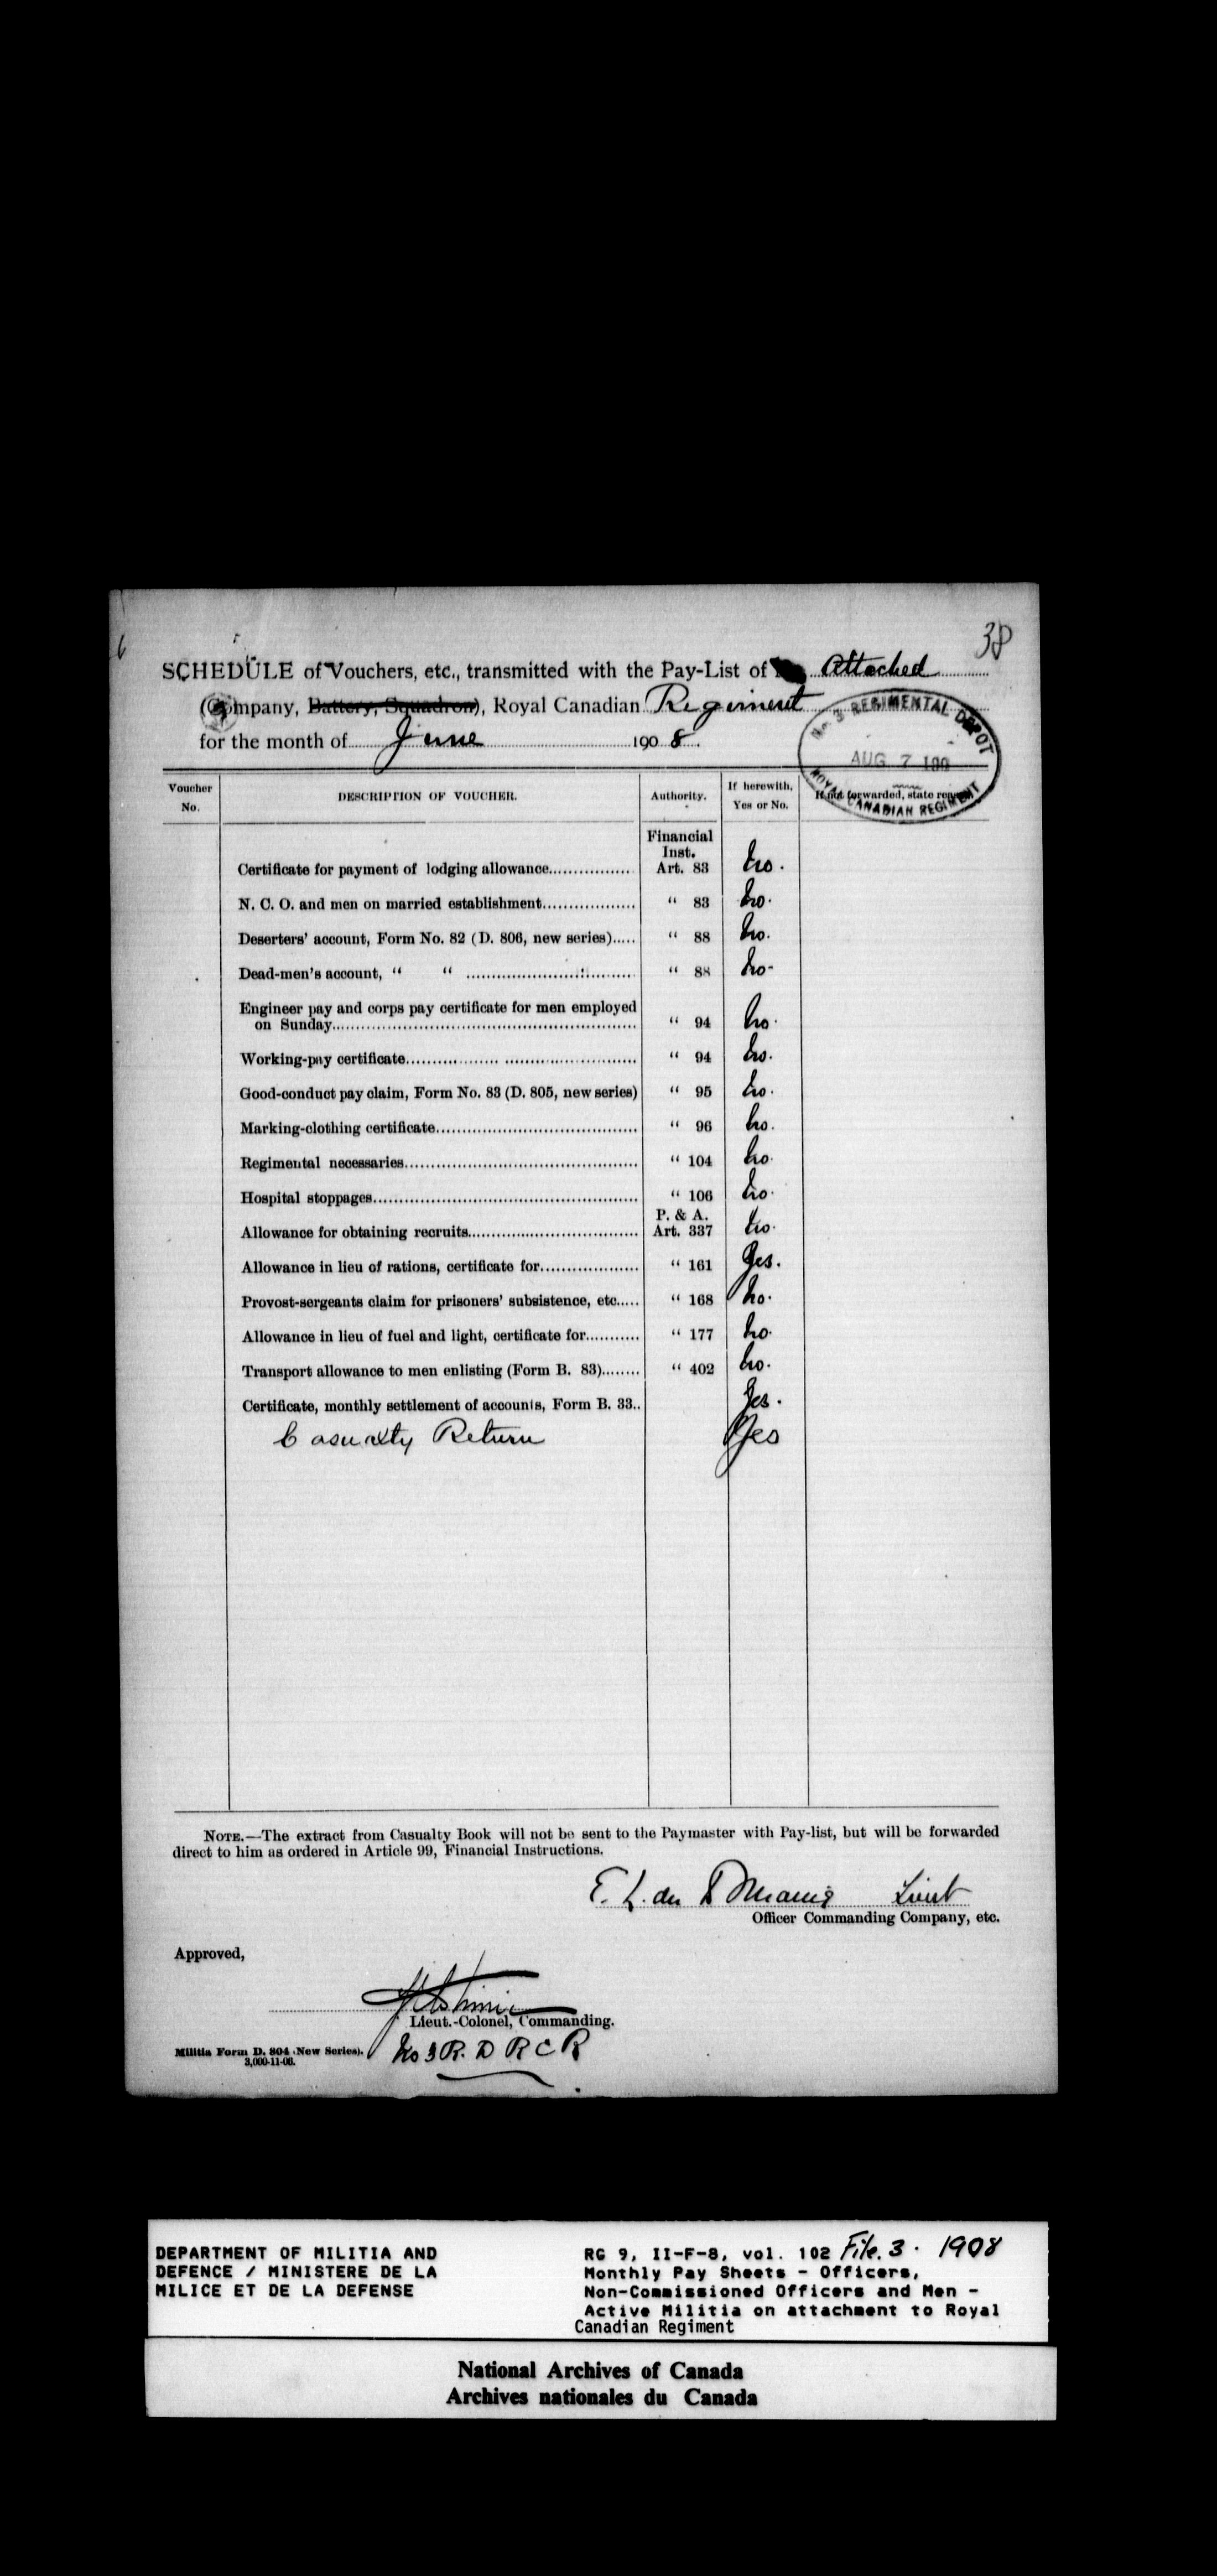 38
SCHEDULE of Vouchers, etc., transmitted with the Pay-List of Attached
(Company, Battery, Squadron), Royal Canadian Regiment
for the month of June 1908.
No. 3 REGIMENTAL DEPOT
AUG 7 190
ROYAL CANADIAN REGIMENT
Voucher No.
DESCRIPTION OF VOUCHER.
Authority.
If herewith, Yes or No.
If not forwarded, state reason
Financial Inst.
Certificate for payment of lodging allowance................ Art. 83 No.
N. C. O. and men on married establishment.................. " 83 No.
Deserters' account, Form No. 82 (D. 806, new series)..... " 88 No.
Dead-men's account, " " .............................. " 88 No-
Engineer pay and corps pay certificate for men employed
on Sunday.......................................................... " 94 No.
Working-pay certificate............................................ " 94 No.
Good-conduct pay claim, Form No. 83 (D. 805, new series) " 95 No.
Marking-clothing certificate...................................... " 96 No.
Regimental necessaries............................................ " 104 No.
Hospital stoppages.................................................. " 106 No.
P. & A.
Allowance for obtaining recruits................................ Art. 337 No.
Allowance in lieu of rations, certificate for................... " 161 Yes.
Provost-sergeants claim for prisoners' subsistence, etc..... " 168 No.
Allowance in lieu of fuel and light, certificate for........... " 177 No.
Transport allowance to men enlisting (Form B. 83)........ " 402 No.
Certificate, monthly settlement of accounts, Form B. 33.. Yes.
Casualty Return Yes
NOTE.—The extract from Casualty Book will not be sent to the Paymaster with Pay-list, but will be forwarded
direct to him as ordered in Article 99, Financial Instructions.
E. L. du Lieut
Officer Commanding Company, etc.
Approved,
Lieut.-Colonel, Commanding.
No 3 R. D R C R
Militia Form D. 804 (New Series).
3,000-11-06.
DEPARTMENT OF MILITIA AND
DEFENCE / MINISTERE DE LA
MILICE ET DE LA DEFENSE
RG 9, II-F-8, vol. 102 File. 3. 1908
Monthly Pay Sheets - Officers,
Non-Commissioned Officers and Men -
Active Militia on attachment to Royal
Canadian Regiment
National Archives of Canada
Archives nationales du Canada